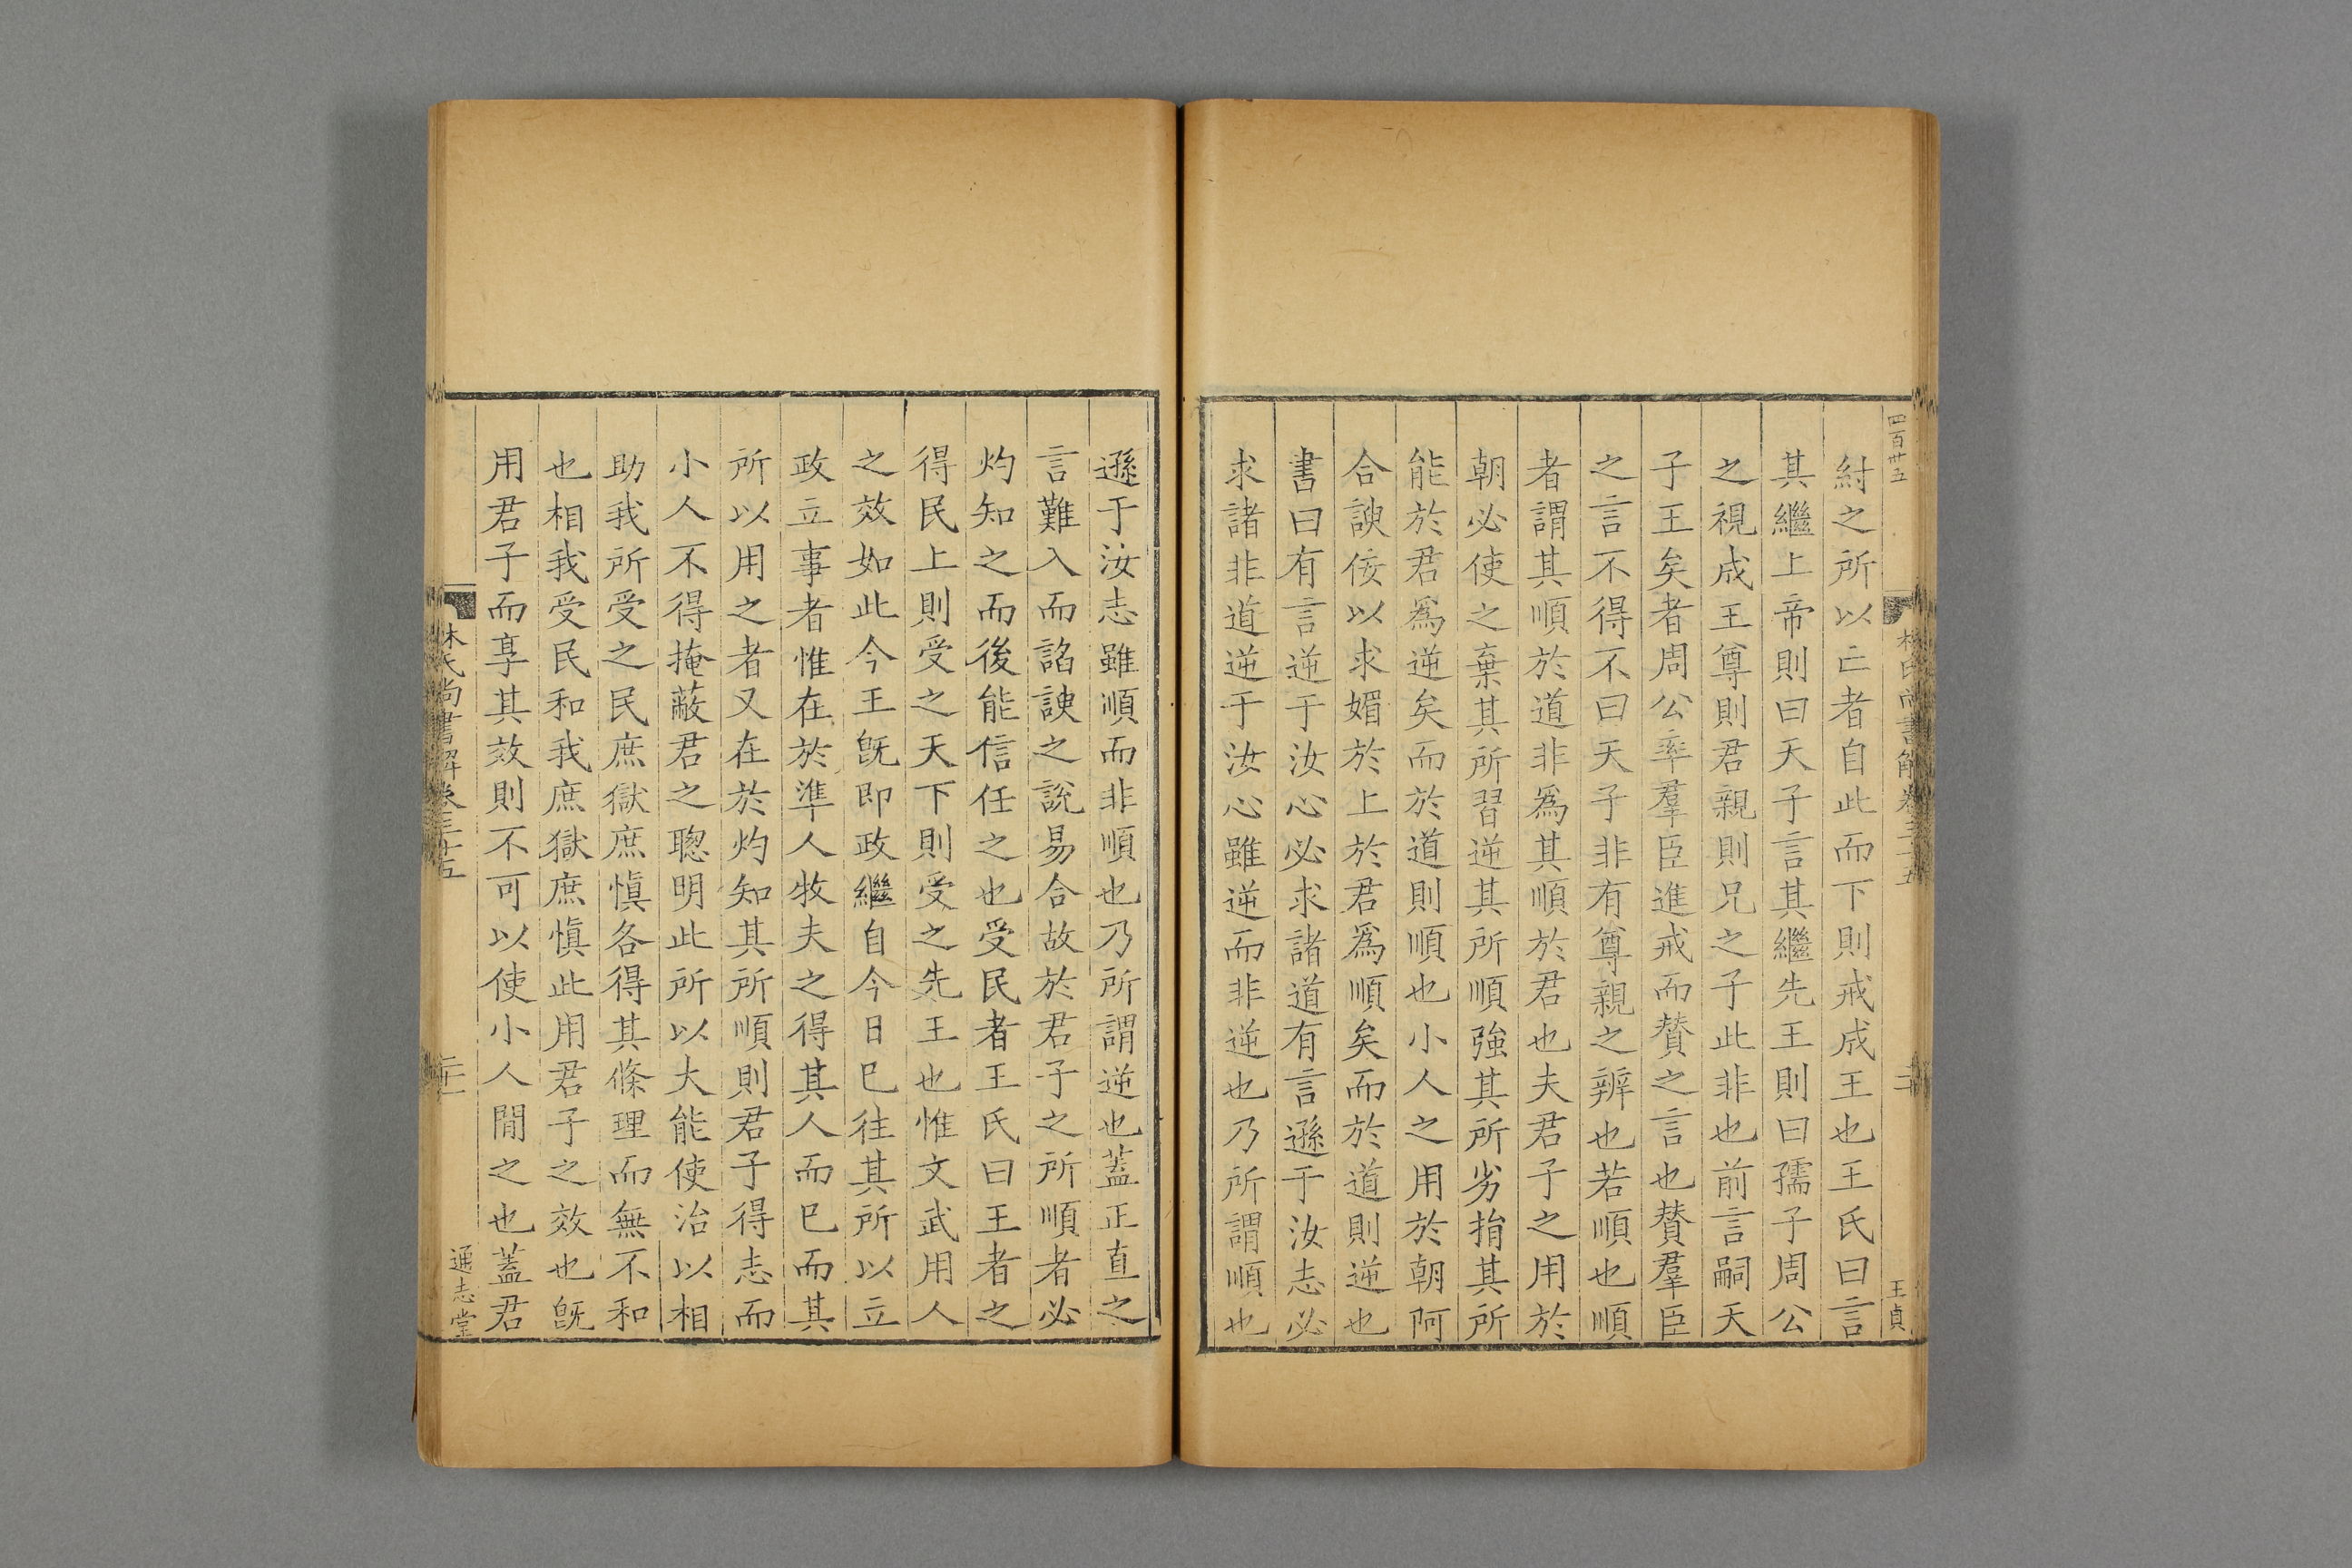 四百廿五
紂之所以亡者自此而下則戒成王也王氏曰言
其繼上帝則曰天子言其繼先王則曰孺子周公
之視成王尊則君親則兄之子此非也前言嗣天
子王矣者周公率羣臣進戒而賛之言也賛羣臣
之言不得不曰天子非有尊親之辨也若順也順
者謂其順於道非爲其順於君也夫君子之用於
朝必使之棄其所習逆其所順強其所劣捐其所
能於君爲逆矣而於道則順也小人之用於朝阿
合諛佞以求媚於上於君爲順矣而於道則逆也
書曰有言逆于汝心必求諸道有言遜于汝志必
求諸非道逆于汝心雖逆而非逆也乃所謂順也
林氏尚書解卷三十五
王貞
遜于汝志雖順而非順也乃所謂逆也蓋正直之
言難入而諂諛之說易合故於君子之所順者必
灼知之而後能信任之也受民者王氏曰王者之
得民上則受之天下則受之先王也惟文武用人
之效如此今王旣即政繼自今日已往其所以立
政立事者惟在於準人牧夫之得其人而已而其
所以用之者又在於灼知其所順則君子得志而
小人不得掩蔽君之聰明此所以大能使治以相
助我所受之民庶獄庶愼各得其條理而無不和
也相我受民和我庶獄庶愼此用君子之效也旣
用君子而享其效則不可以使小人閒之也蓋君
林氏尚書解卷三十五
通志堂